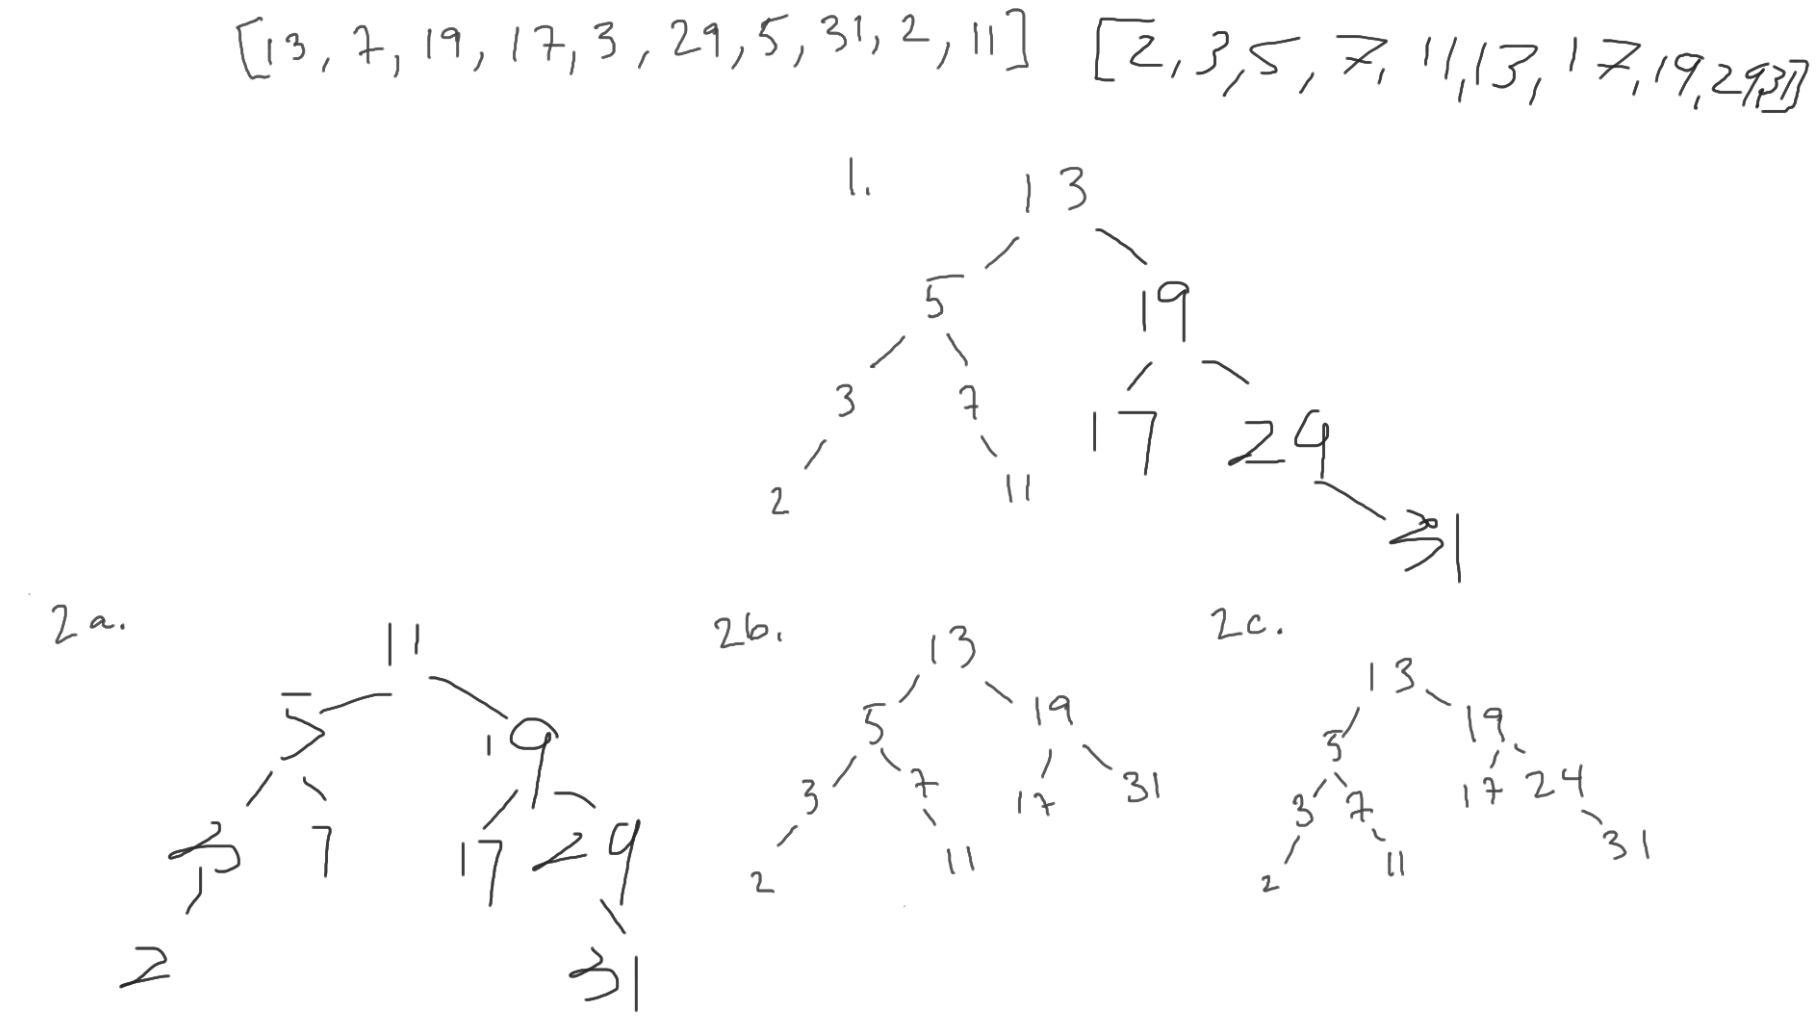 [13, 7, 19, 17, 3, 29, 5, 31, 2, 11] [2, 3, 5, 7, 11, 13, 17, 19, 29, 31]
1. 13
5 19
3 7 17 29
2 11 31
2a. 11
5 19
3 7 17 29
2 31
2b. 13
5 19
3 7 17 31
2 11
2c. 13
5 19
3 7 17 24
2 11 31